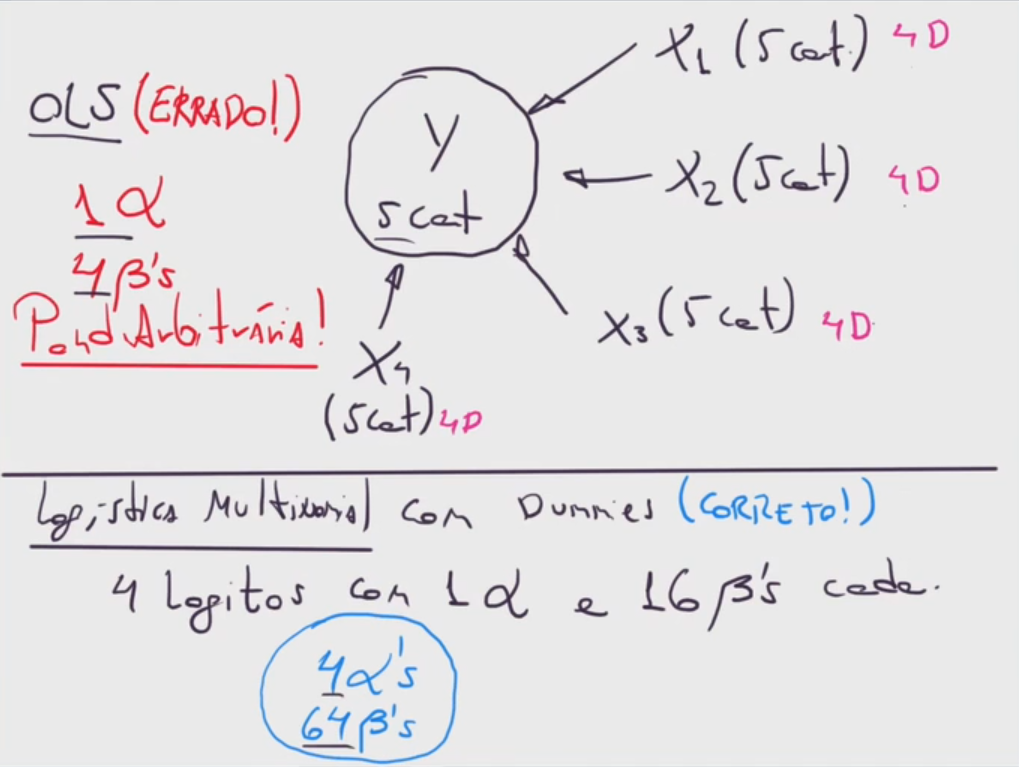 OLS (ERRADO!)
1 α
4 β's
Pond Arbitrária!
Y
5 cat
X₁ (5 cat) 4D
X₂ (5 cat) 4D
X₃ (5 cat) 4D
X₄
(5 cat) 4D
Logística Multinomial com Dummies (CORRETO!)
4 Logitos com 1 α e 16 β's cada.
4 α's
64 β's